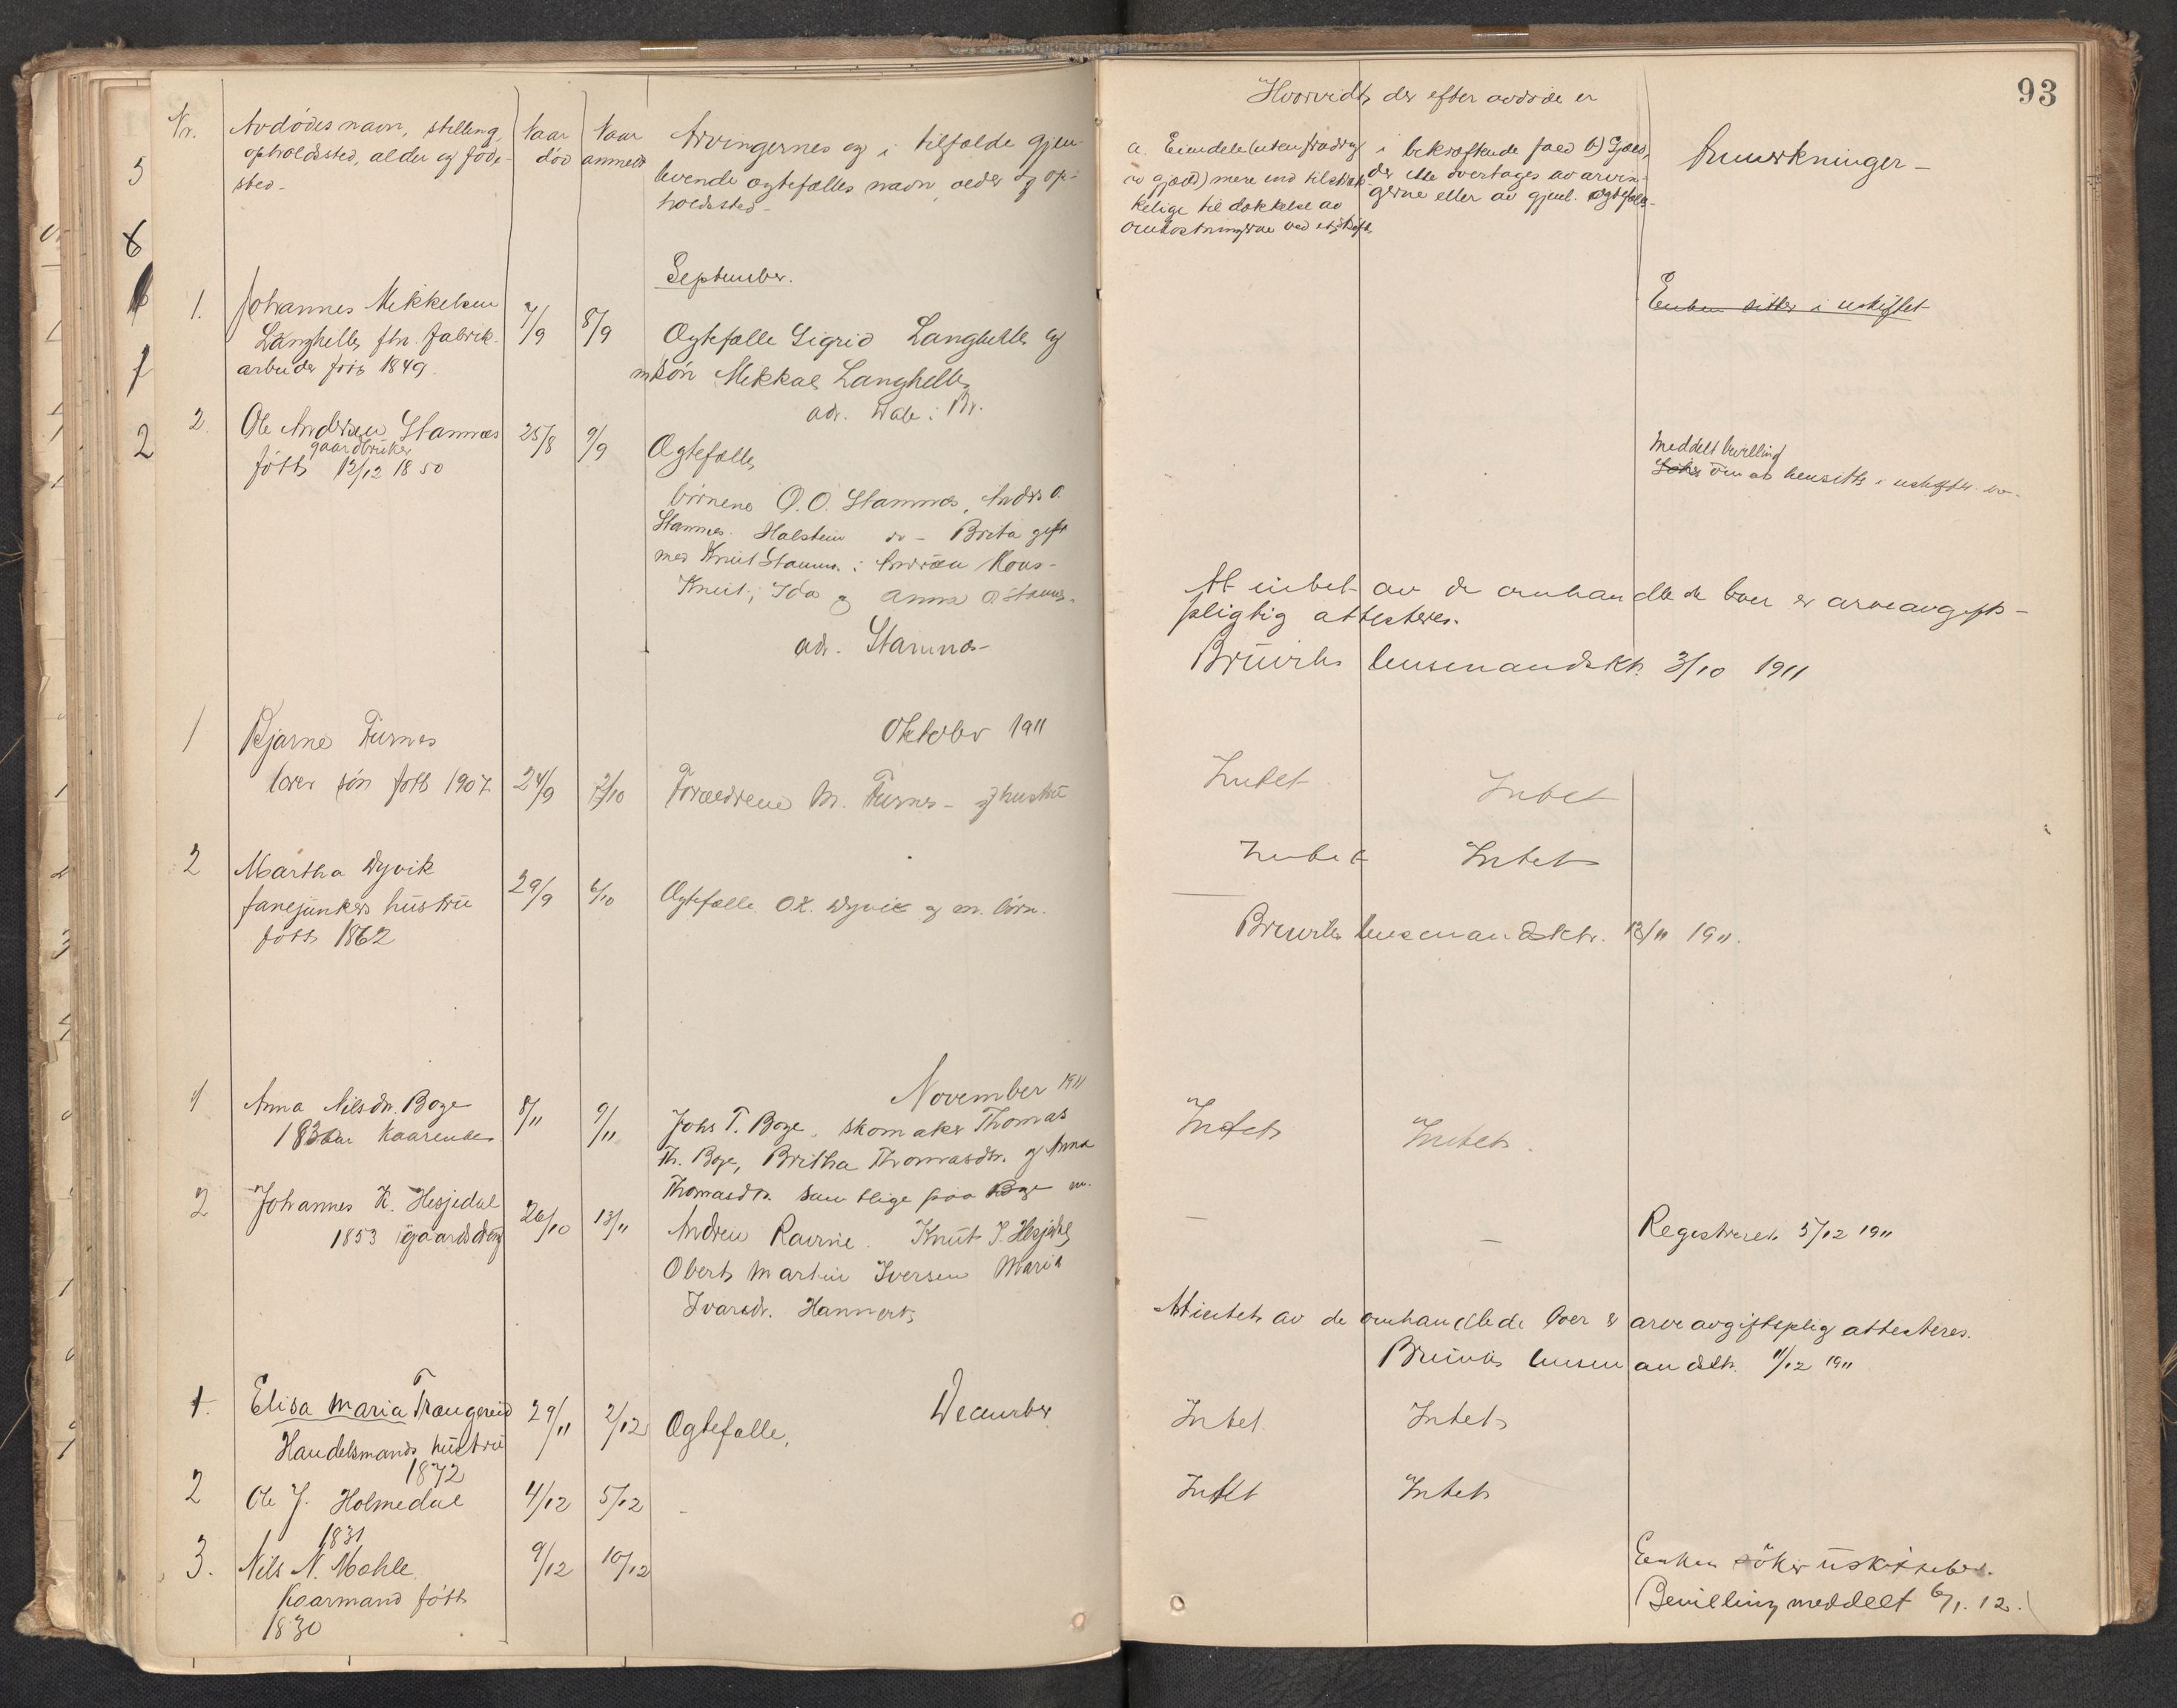 93
Nr.
Avdødes navn, stilling,
opholdssted, alder og føde-
sted-
Naar
død
Naar
anmeldt
Arvingernes og i tilfælde gjen-
levende ægtefælles navn, alder og op-
holdssted-
Hvorvidt der efter avdøde er
a. Eiendele (uten fradrag
av gjæld) mere end tilstræk-
kelige til dækkelse av
omkostningerne ved et skifte
i bekræftende fald b) Gjæld,
der ikke overtages av arvin-
gerne eller av gjenl. ægtefælle-
Anmerkninger-
5
6
1
2
September.
1.
Johannes Mikkelsen
Langhelle, fhv. fabrik-
arbeider født 1849.
7/9
8/9
Ægtefælle Sigrid Langhelle og
m søn Mikkal Langhelle
adr. Dale i Br.
Enken sitter i uskiftet
2.
Ole Andersen Stamnes
gaardbruker
født 12/12 1850
25/8
9/9
Ægtefælle,
børnene O. O. Stamnes, Anders O.
Stamnes. Halstein do - Brita gift
med Knut Stamn. i
Knut, Ida og Anna O. Stamnes.
adr. Stamnes-
Meddelt bevilling
Søker om at hensitte i uskiftet bo.
At intet av de omhandlede boer er arveavgifts-
pligtig attesteres.
Bruvik lensmandskt. 3/10 1911
Oktober 1911
1
Bjarne Furnes
lærer søn født 1907
24/9
2/10
Foreldrene M. Furnes- og hustru
Intet
Intet
2
Martha Dyvik
fanejunkers hustru
født 1862
29/9
6/10
Ægtefælle O.K. Dyvik og m. børn.
Intet
Intet
Bruvik lensmandsktr. 13/11 1911.
November 1911
1
Anna Nilsdr. Boge
1830 kaarenke
8/11
9/11
Johs T. Boge, skomaker Thomas
Th. Boge, Britha Thomasdtr. og Anna
Thomasdtr. samtlige paa Boge
Intet
Intet.
2
Johannes K. Hesjedal
1853 gaardsdreng
26/10
13/11
Andrew Ravne. Knut J. Hesjedal,
Obert Martin Iversen Maria
Ivarsdr. Hannert,
-
-
Registreret 5/12 1911
At intet av de omhandlede boer er arveavgiftsplig attesteres.
Bruvik lensmandskt. 11/12 1911
December
1.
Elisa Maria Trængereid
Handelsmands hustru
1872
29/11
2/12
Ægtefælle,
Intet.
Intet
2
Ole J. Holmedal
1831
4/12
5/12
-
Intet
Intet
3.
Nils N. Mæhle
Kaarmand født
1830
9/12
10/12
Enken søker uskiftebev.
Bevilling meddelt 6/1. 12.